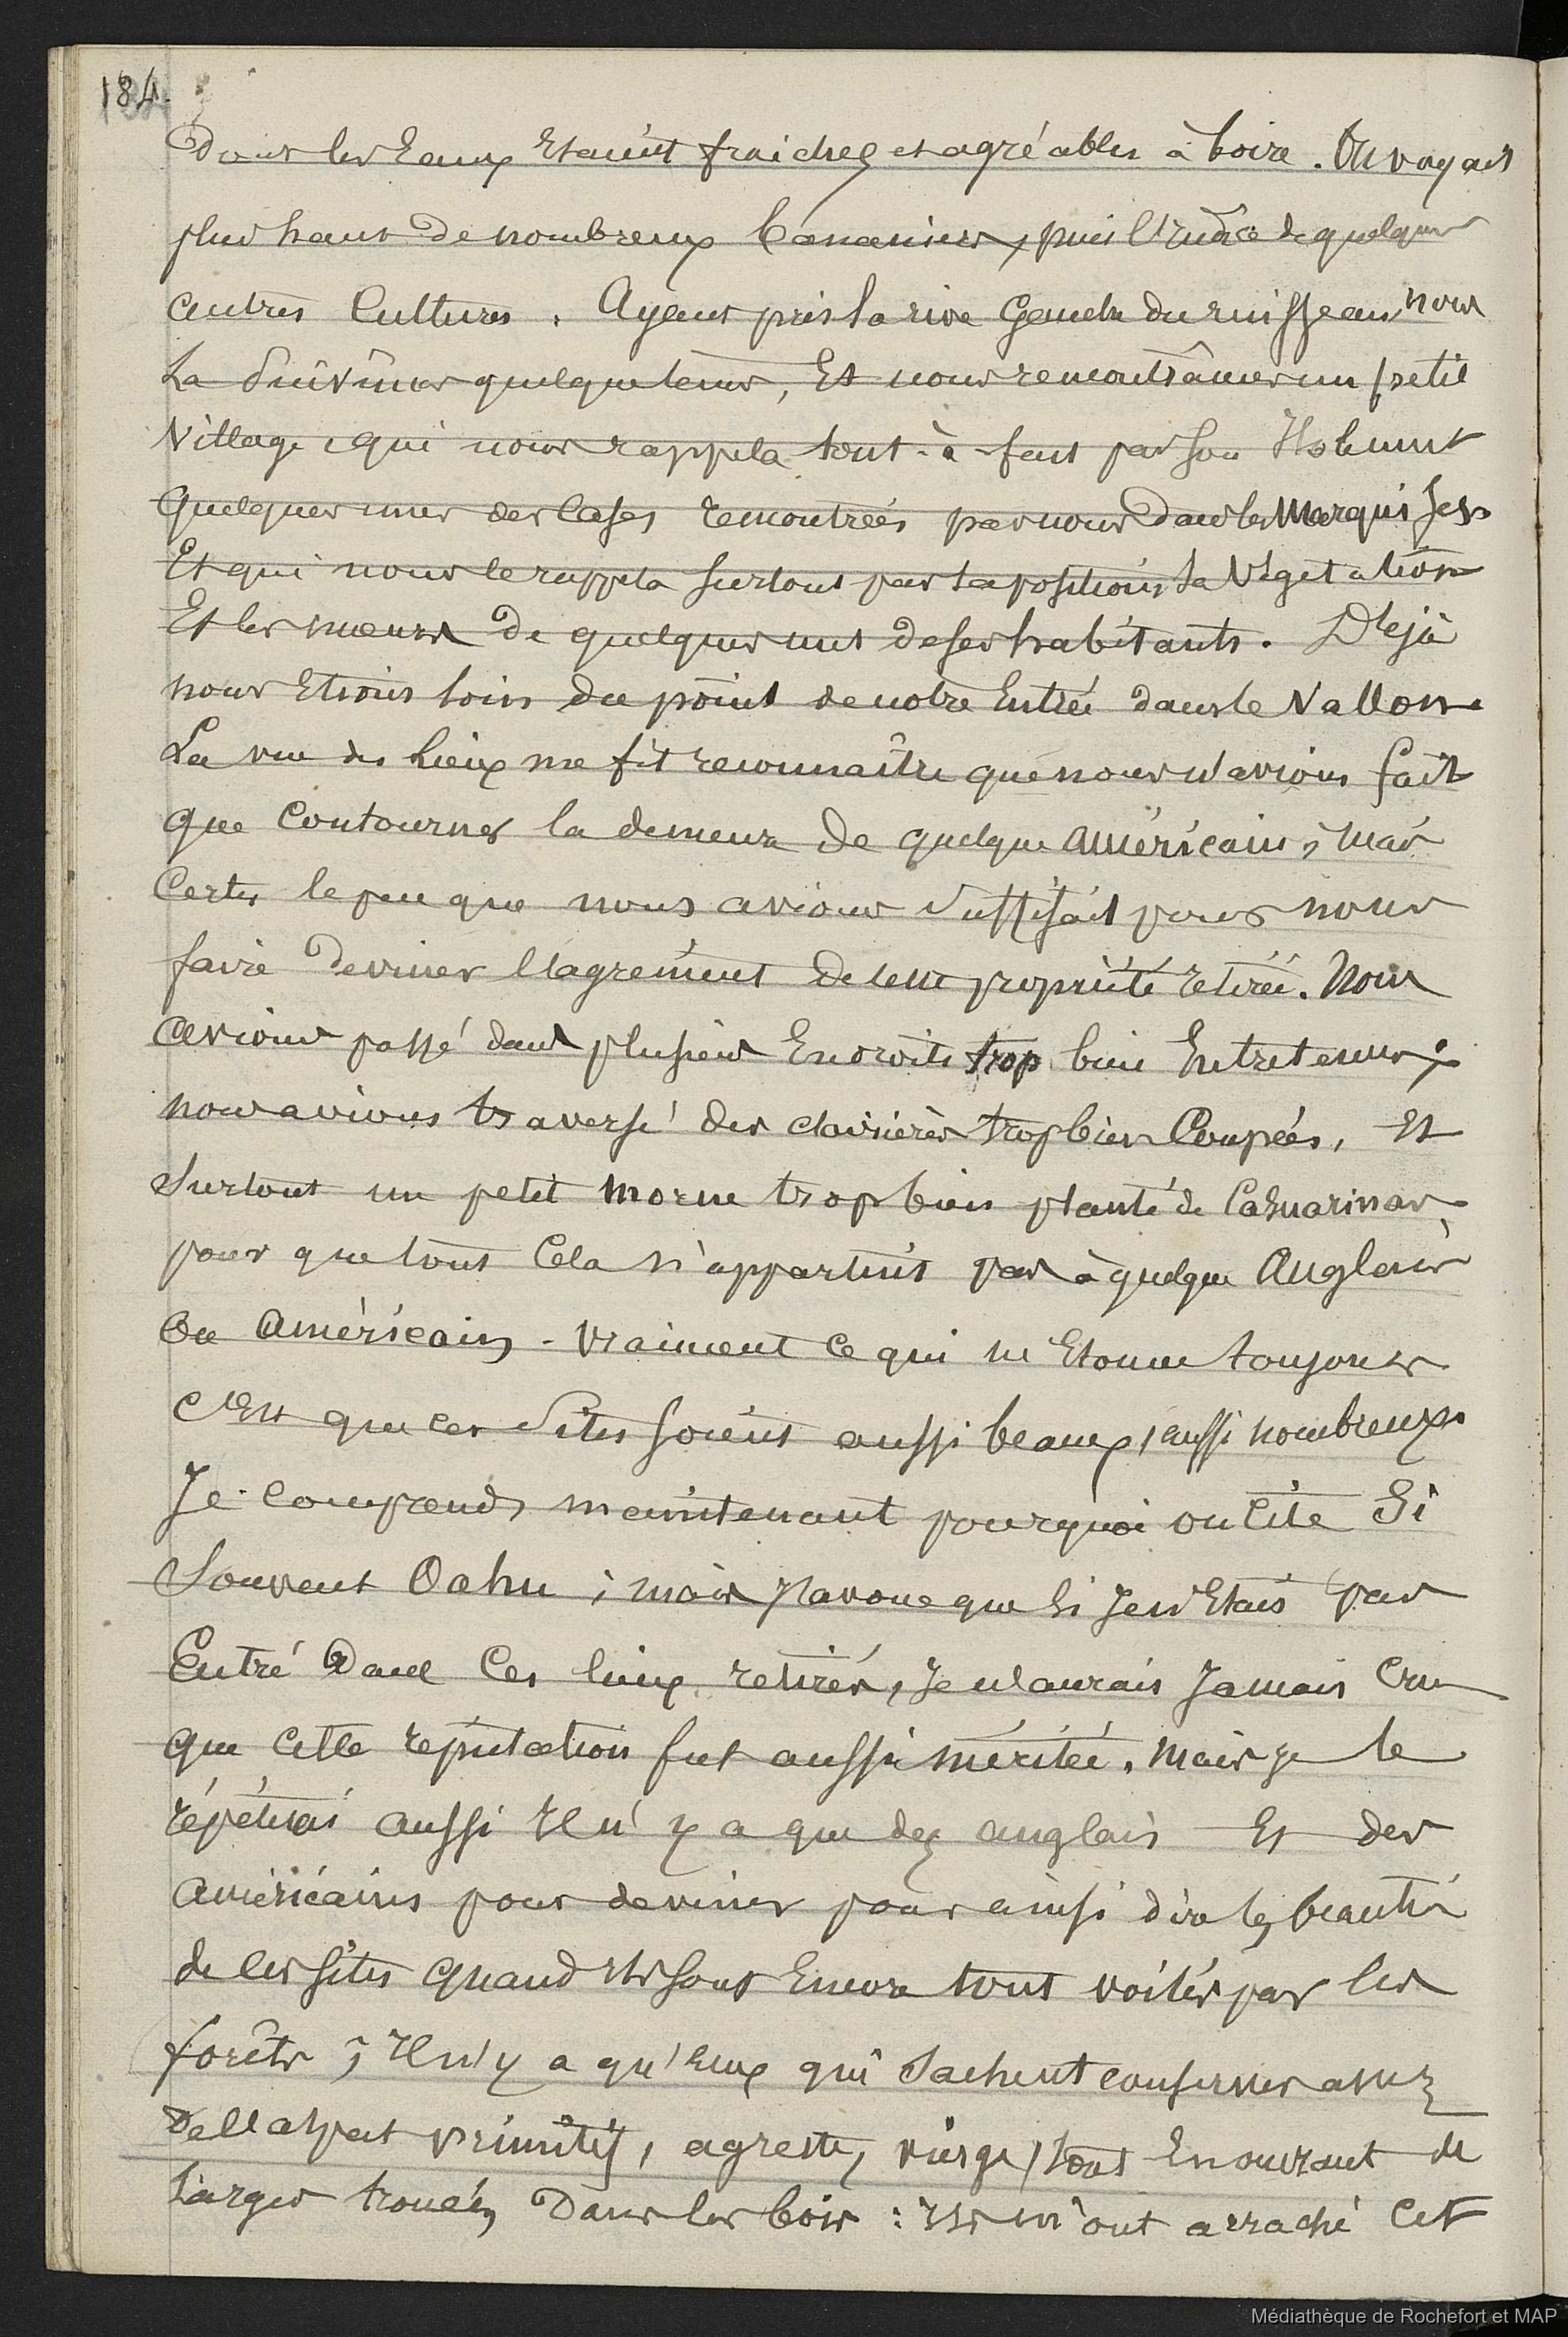 184.
dont les Eaux Etaient fraiches et agréables à boire. On voyait
plus haut de nombreux bananiers, puis l'indice de quelques
autres Cultures. Ayant pris la rive Gauche du ruisseau nous
la Suivîmes quelque tems, Et nous rencontrâmes un petit
Village qui nous rappela tout-à-fait par son Isolement
quelques unes des Cases rencontrées par nous dans les Marquises
Et qui nous le rappela surtout par la position, la Végétation
Et les mœurs de quelques uns de ses habitants. Déjà
nous Etions loin du point de notre Entrée dans le Vallon.
La vue des lieux me fit reconnaître que nous n'avions fait
que Contourner la demeure de quelque américain, mais
Certes le peu que nous avions Suffisait pour nous
faire deviner l'agrément de cette propriété retirée. Nous
avions passé dans plusieurs Endroits trop bien Entretenus;
nous avions traversé des clairières trop bien Coupées, Et
Surtout un petit morne trop bien planté de Casuarinas
pour que tout Cela n'appartint pas à quelque Anglais
Ou Américain. Vraiment Ce qui m'Etonne toujours
C'Est que ces Sites soient aussi beaux, aussi nombreux.
Je Comprends maintenant pourquoi on Cite Si
Souvent Oahu; mais J'avoue que Si Je n'Etais pas
Entré dans Ces lieux retirés, Je n'aurais Jamais Cru
que Cette réputation fut aussi méritée. Mais je le
répéterai aussi Il n'y a que des anglais Et des
américains pour deviner pour ainsi dire les beautés
de Ces sites quand Ils sont Encore tout voilés par les
forêts; Il n'y a qu'Eux qui Sachent conserver assez
de l'aspect primitif, agreste, vierge, tout En ouvrant de
larges trouées dans les bois: Ils m'ont arraché Cet
Médiathèque de Rochefort et MAP